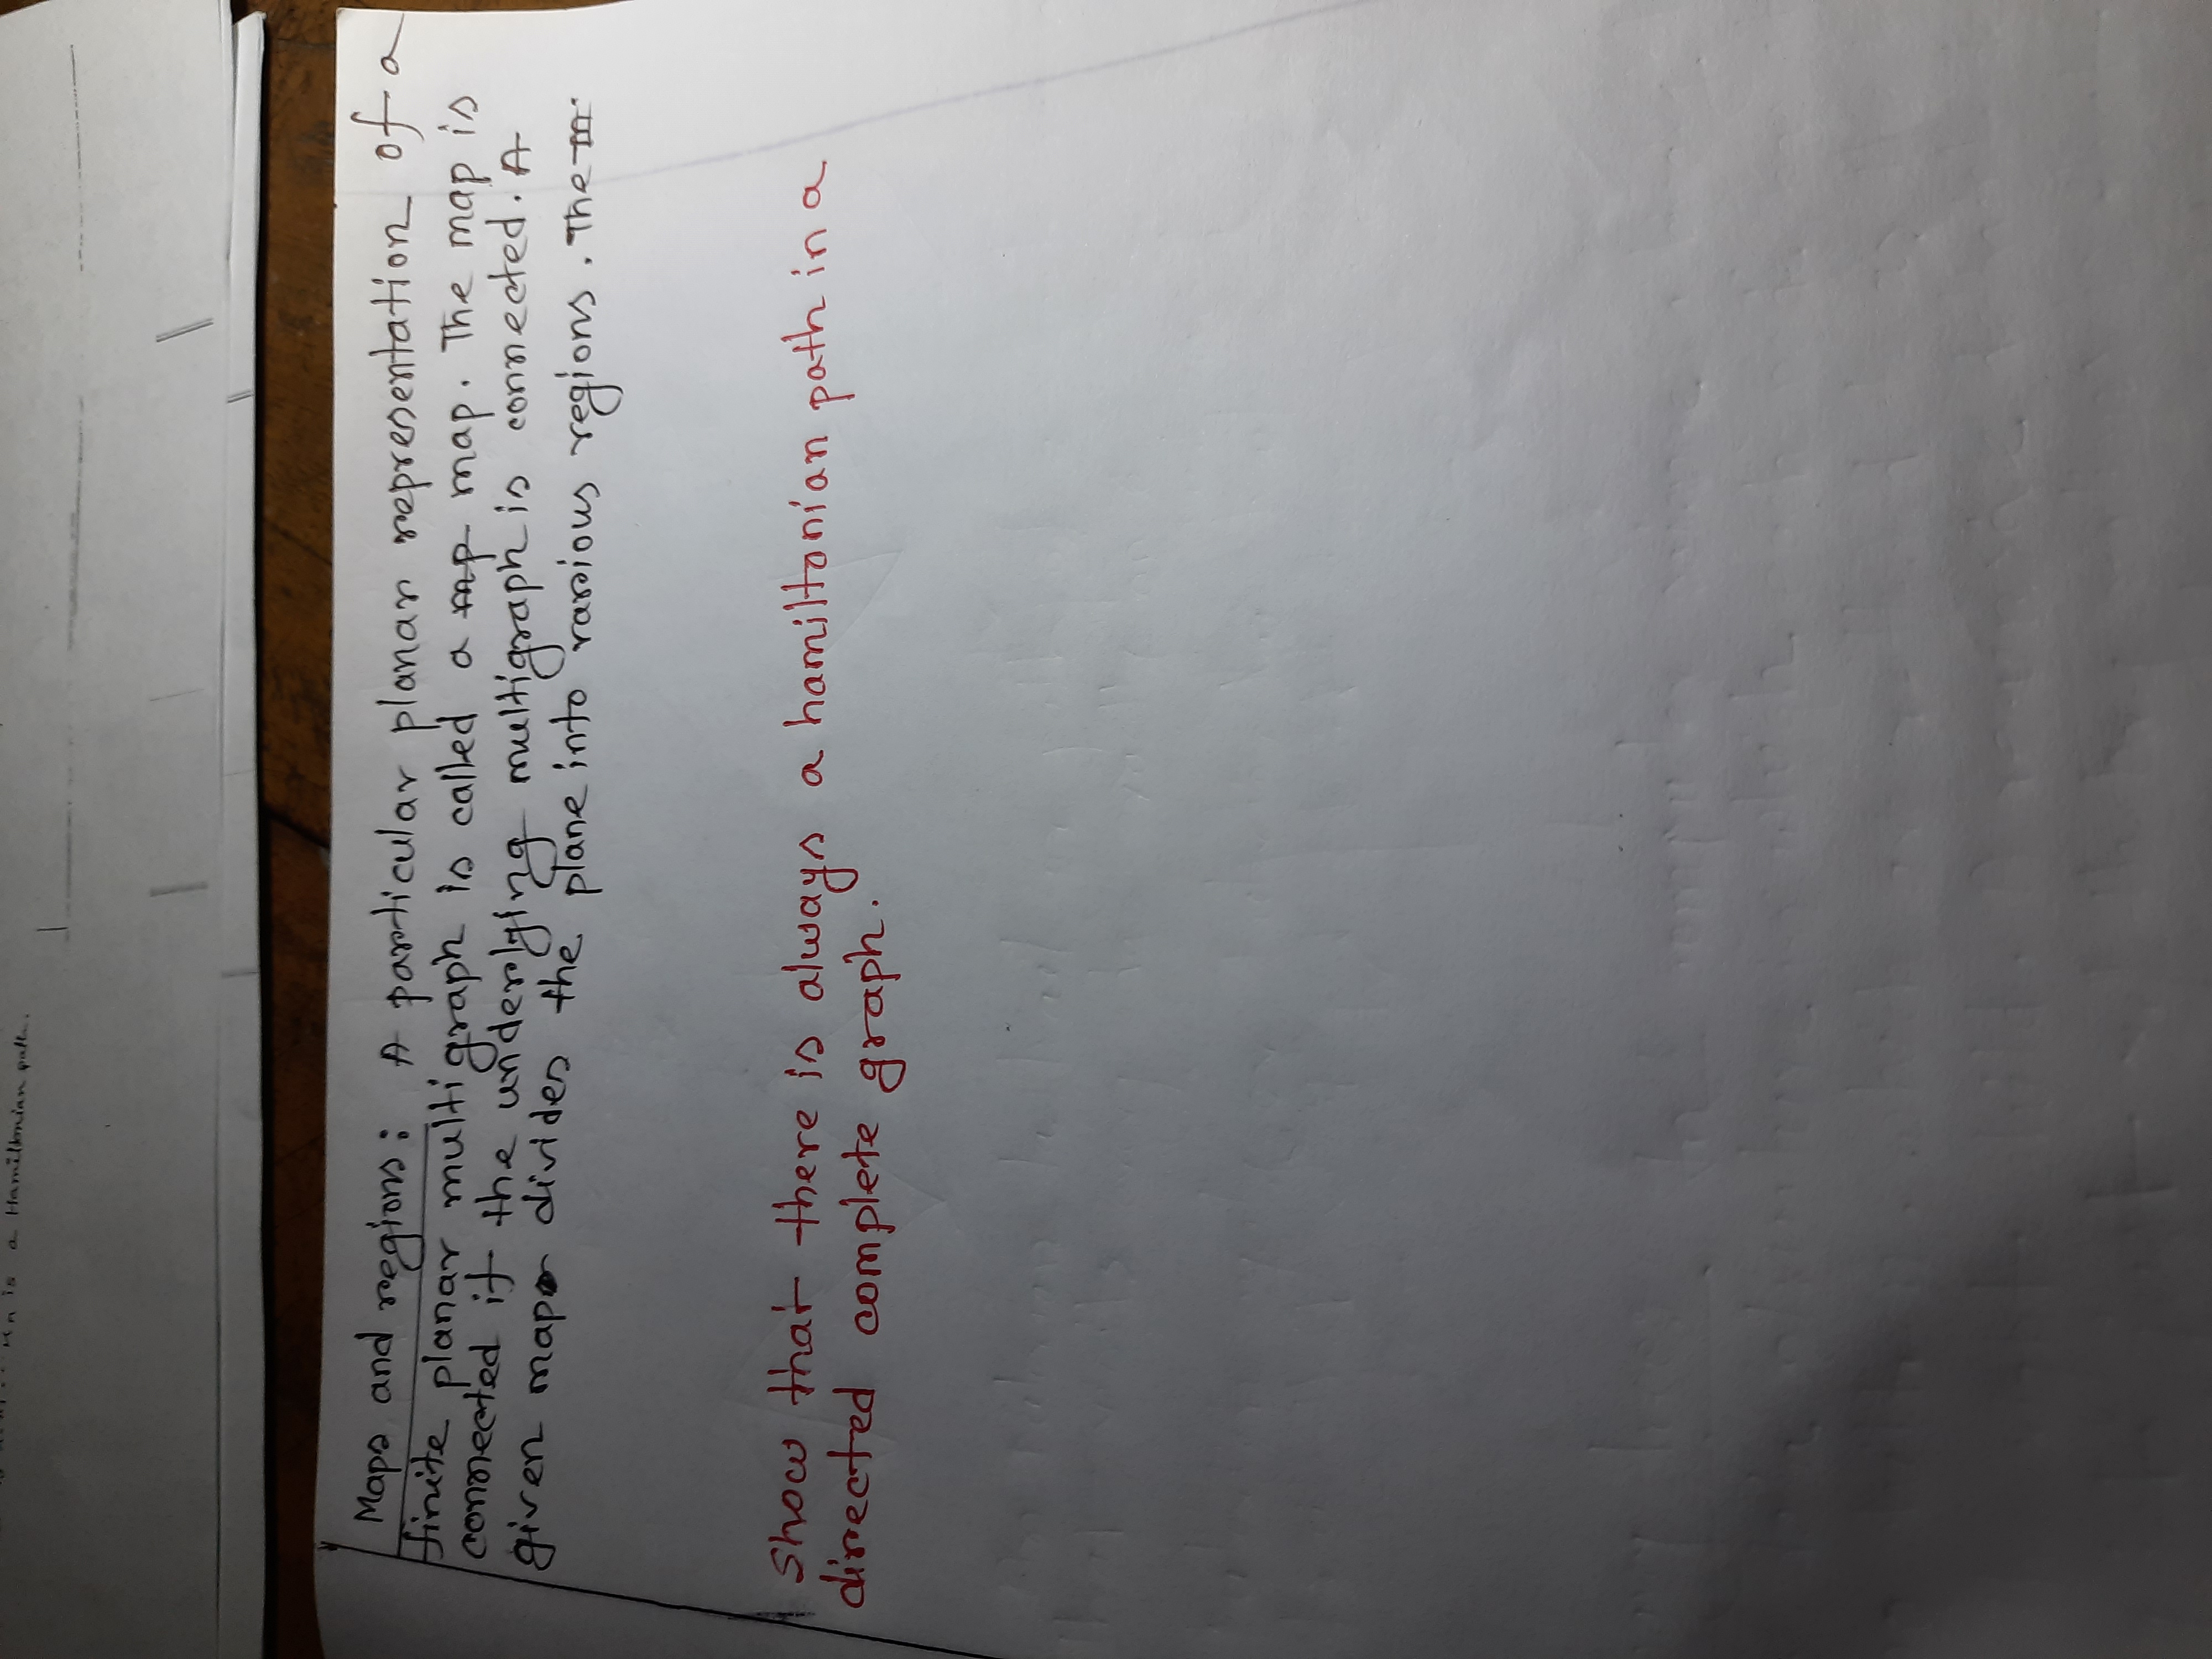 is a Hamiltonian path.
Maps and regions: A particular planar representation of a
finite planar multigraph is called a map. The map is
connected if the underlying multigraph is connected. A
given map divides the plane into various regions. The
Show that there is always a hamiltonian path in a
directed complete graph.